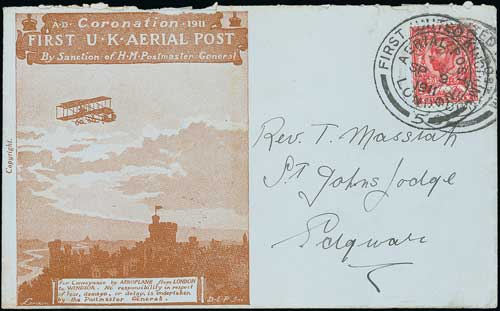 A·D· Coronation·1911
FIRST U·K·AERIAL POST
By Sanction of H·M·Postmaster General
Copyright.
For Conveyance by AEROPLANE from LONDON
to WINDSOR. No responsibility in respect
of loss, damage, or delay, is undertaken
by the Postmaster General.
FIRST UNITED KINGDOM
AERIAL POST
SP 9
1911
LONDON
5
Rev. T. Massiah
St Johns Lodge